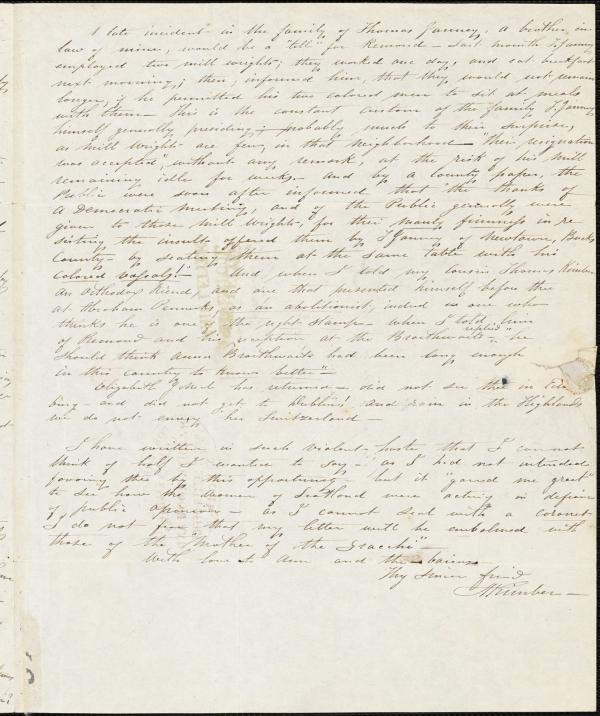 A late incident in the family of Thomas Janney, a brother in
law of mine, would be a "tell" for Remond — Last month T. Janney
employed two mill wrights; they worked one day, and eat breakfast
next morning; then informed him, that they would not remain
longer, if he permitted his two colored men to sit at meals
with them — This is the constant custom of the family, T. Janney
himself generally presiding; — probably much to their surprise,
as mill wrights are few, in that neighborhood — Their resignation
was accepted, without any remark, at the risk of his mill
remaining idle for weeks — And by a county paper, the
Public were soon after informed that "the thanks of
A Democratic meeting, and of the Public generally were
given to those Mill Wrights, for their manly firmness in re
sisting the insult offered them by T Janney of Newtown, Bucks
County — by seating them at the same table with his
colored vassals! — And, when I told my cousin Thomas Kimber
an Orthodox Friend, and one that presented himself before thee
at Abraham Pennocks, as an abolitionist, indeed as one who
thinks he is one of the right stamp — when I told him
of Remond and his reception at the Braithwaits — he replied "he
should think Anna Braithwaite had been long enough
in this country to know better" —
Elizabeth Neal has returned — did not see thee in Edin
burg — and did not get to Dublin! and rain in the Highlands
we do not envy her Switzerland —
I have written in such violent haste that I can not
think of half I wanted to say — as I had not intended
favoring thee by this opportunity — but it "garred me greet"
to see how the women of Scotland were acting in defiance
of public opinion — as I cannot seal with a coronet
I do not fear that my letter will be embalmed with
those of the "Mother of the Gracchi" —
With love to Ann and the bairns
Thy sincere friend
A Kimber —